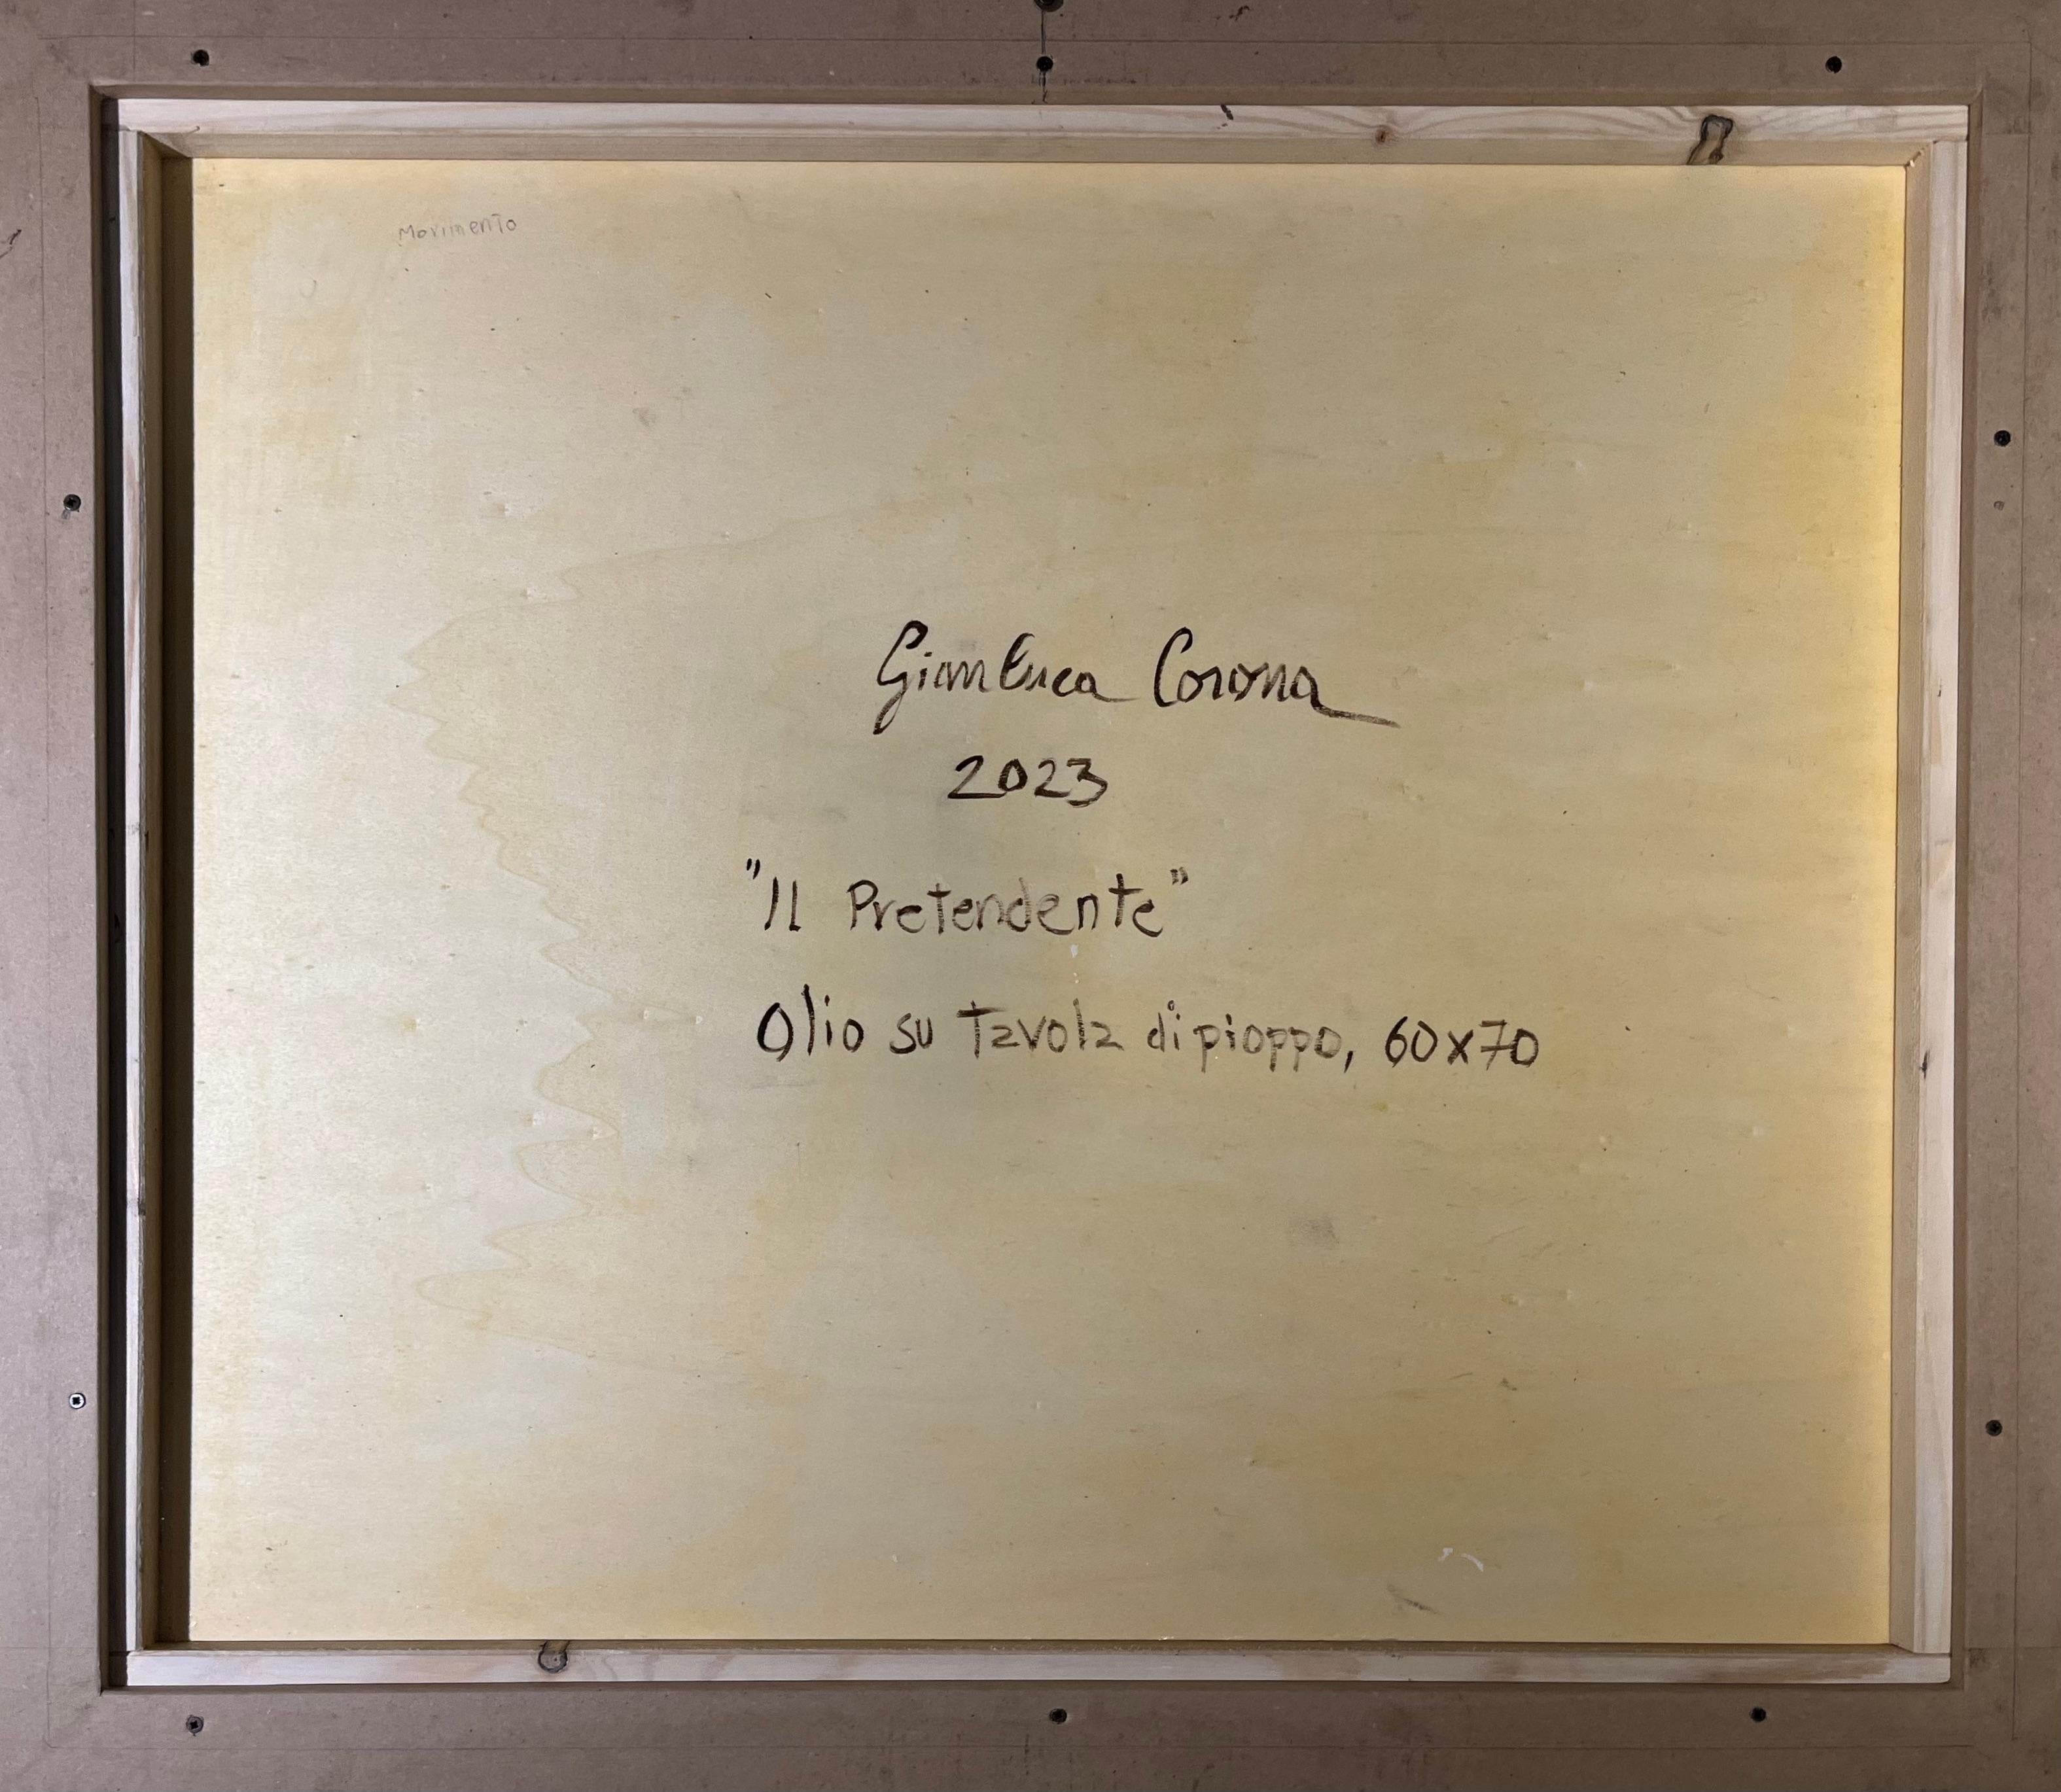 Movimento
Gianluca Corona
2023
"Il Pretendente"
Olio su tavola di pioppo, 60x70